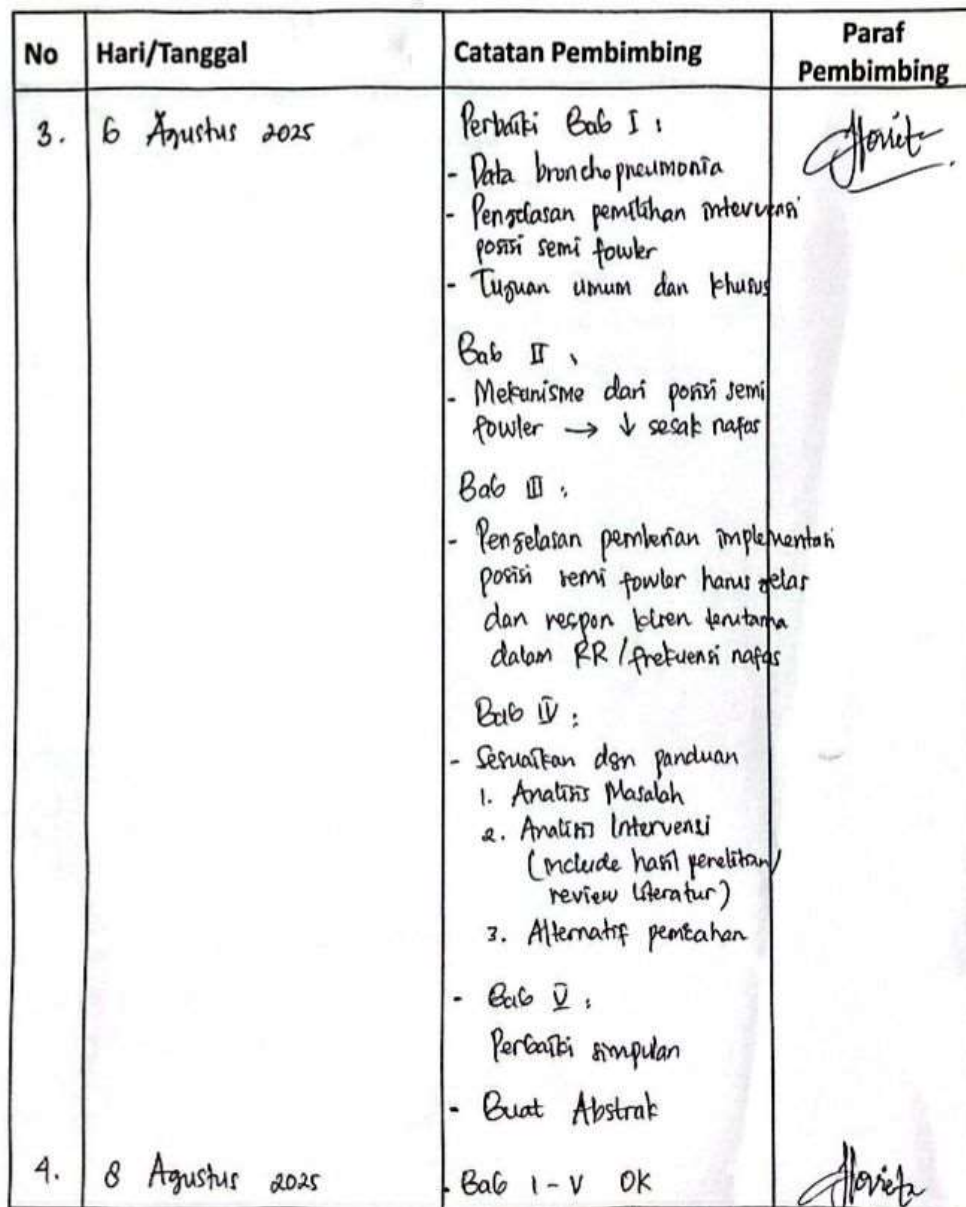 No Hari/Tanggal Catatan Pembimbing Paraf Pembimbing
3. 6 Agustus 2025 Perbaiki Bab I :
- Data bronchopneumonia
- Penjelasan pemilihan intervensi
posisi semi fowler
- Tujuan umum dan khusus
Bab II :
- Mekanisme dari posisi semi
fowler → ↓ sesak nafas
Bab III :
- Penjelasan pemberian implementasi
posisi semi fowler harus jelas
dan respon klien terutama
dalam RR / frekuensi nafas
Bab IV :
- Sesuaikan dgn panduan
1. Analisis Masalah
2. Analisis Intervensi
(include hasil penelitian/
review literatur)
3. Alternatif pemecahan
- Bab V :
Perbaiki simpulan
- Buat Abstrak
4. 8 Agustus 2025 - Bab I - V OK